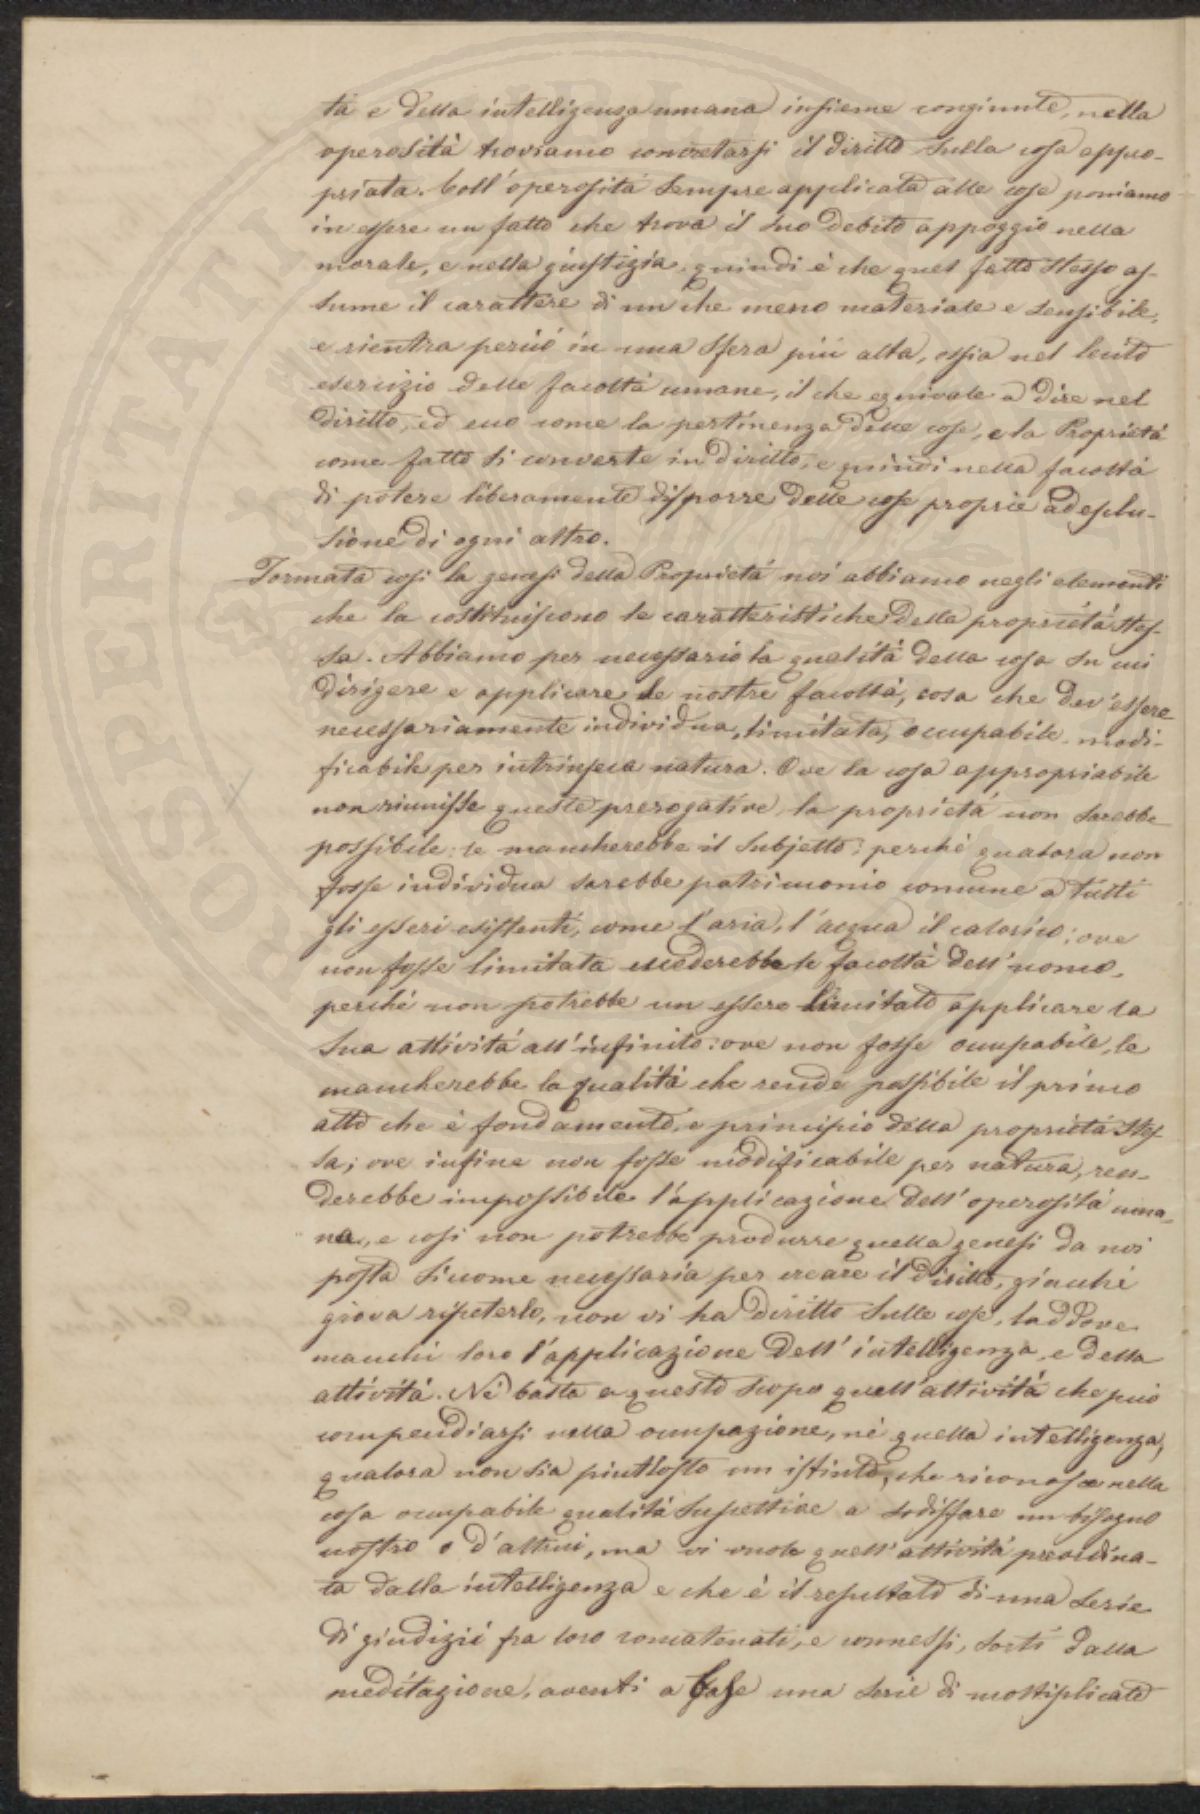 tà e della intelligenza umana insieme congiunte, nella
operosità troviamo concretarsi il diritto sulla cosa appro-
priata. Coll'operosità sempre applicata alle cose poniamo
in essere un fatto che trova il suo debito appoggio nella
morale, e nella giustizia, quindi è che quel fatto stesso as-
sume il carattere di un che meno materiale e sensibile,
e rientra perciò in una sfera più alta, ossia nel lecito
esercizio delle facoltà umane, il che equivale a dire nel
diritto, ed ecco come la pertinenza delle cose, e la Proprietà
come fatto si converte in diritto, e quindi nella facoltà
di potere liberamente disporre delle cose proprie ad esclu-
sione di ogni altro.
Formata così la genesi della Proprietà noi abbiamo negli elementi
che la costituiscono le caratteristiche della proprietà stes-
sa. Abbiamo per necessario la qualità della cosa su cui
dirigere e applicare le nostre facoltà, cosa che dev'essere
necessariamente individua, limitata, occupabile, modi-
ficabile per intrinseca natura. Ove la cosa appropriabile
non riunisse queste prerogative, la proprietà non sarebbe
possibile: le mancherebbe il subjetto; perché qualora non
fosse individua sarebbe patrimonio comune a tutti
gli esseri esistenti, come l'aria, l'acqua il calorico; ove
non fosse limitata eccederebbe le facoltà dell'uomo,
perché non potrebbe un essere limitato applicare la
sua attività all'infinito: ove non fosse occupabile, le
mancherebbe la qualità che rende possibile il primo
atto che è fondamento, e principio della proprietà stes-
sa; ove infine non fosse modificabile per natura, ren-
derebbe impossibile l'applicazione dell'operosità uma-
na, e così non potrebbe produrre quella genesi da noi
posta siccome necessaria per creare il diritto, giacché
giova ripeterlo, non vi ha diritto sulle cose, laddove
manchi loro l'applicazione dell'intelligenza, e della
attività. Né basta a questo scopo quell'attività che può
compendiarsi nella occupazione, né quella intelligenza,
qualora non sia piuttosto un istinto, che riconosce nella
cosa occupabile qualità suscettive a sodisfare un bisogno
nostro o d'altrui, ma vi vuole quell'attività preordina-
ta dalla intelligenza e che è il resultato di una serie
di giudizii fra loro concatenati, e connessi, sorti dalla
meditazione, aventi a base una serie di moltiplicate
PROSPERITATI